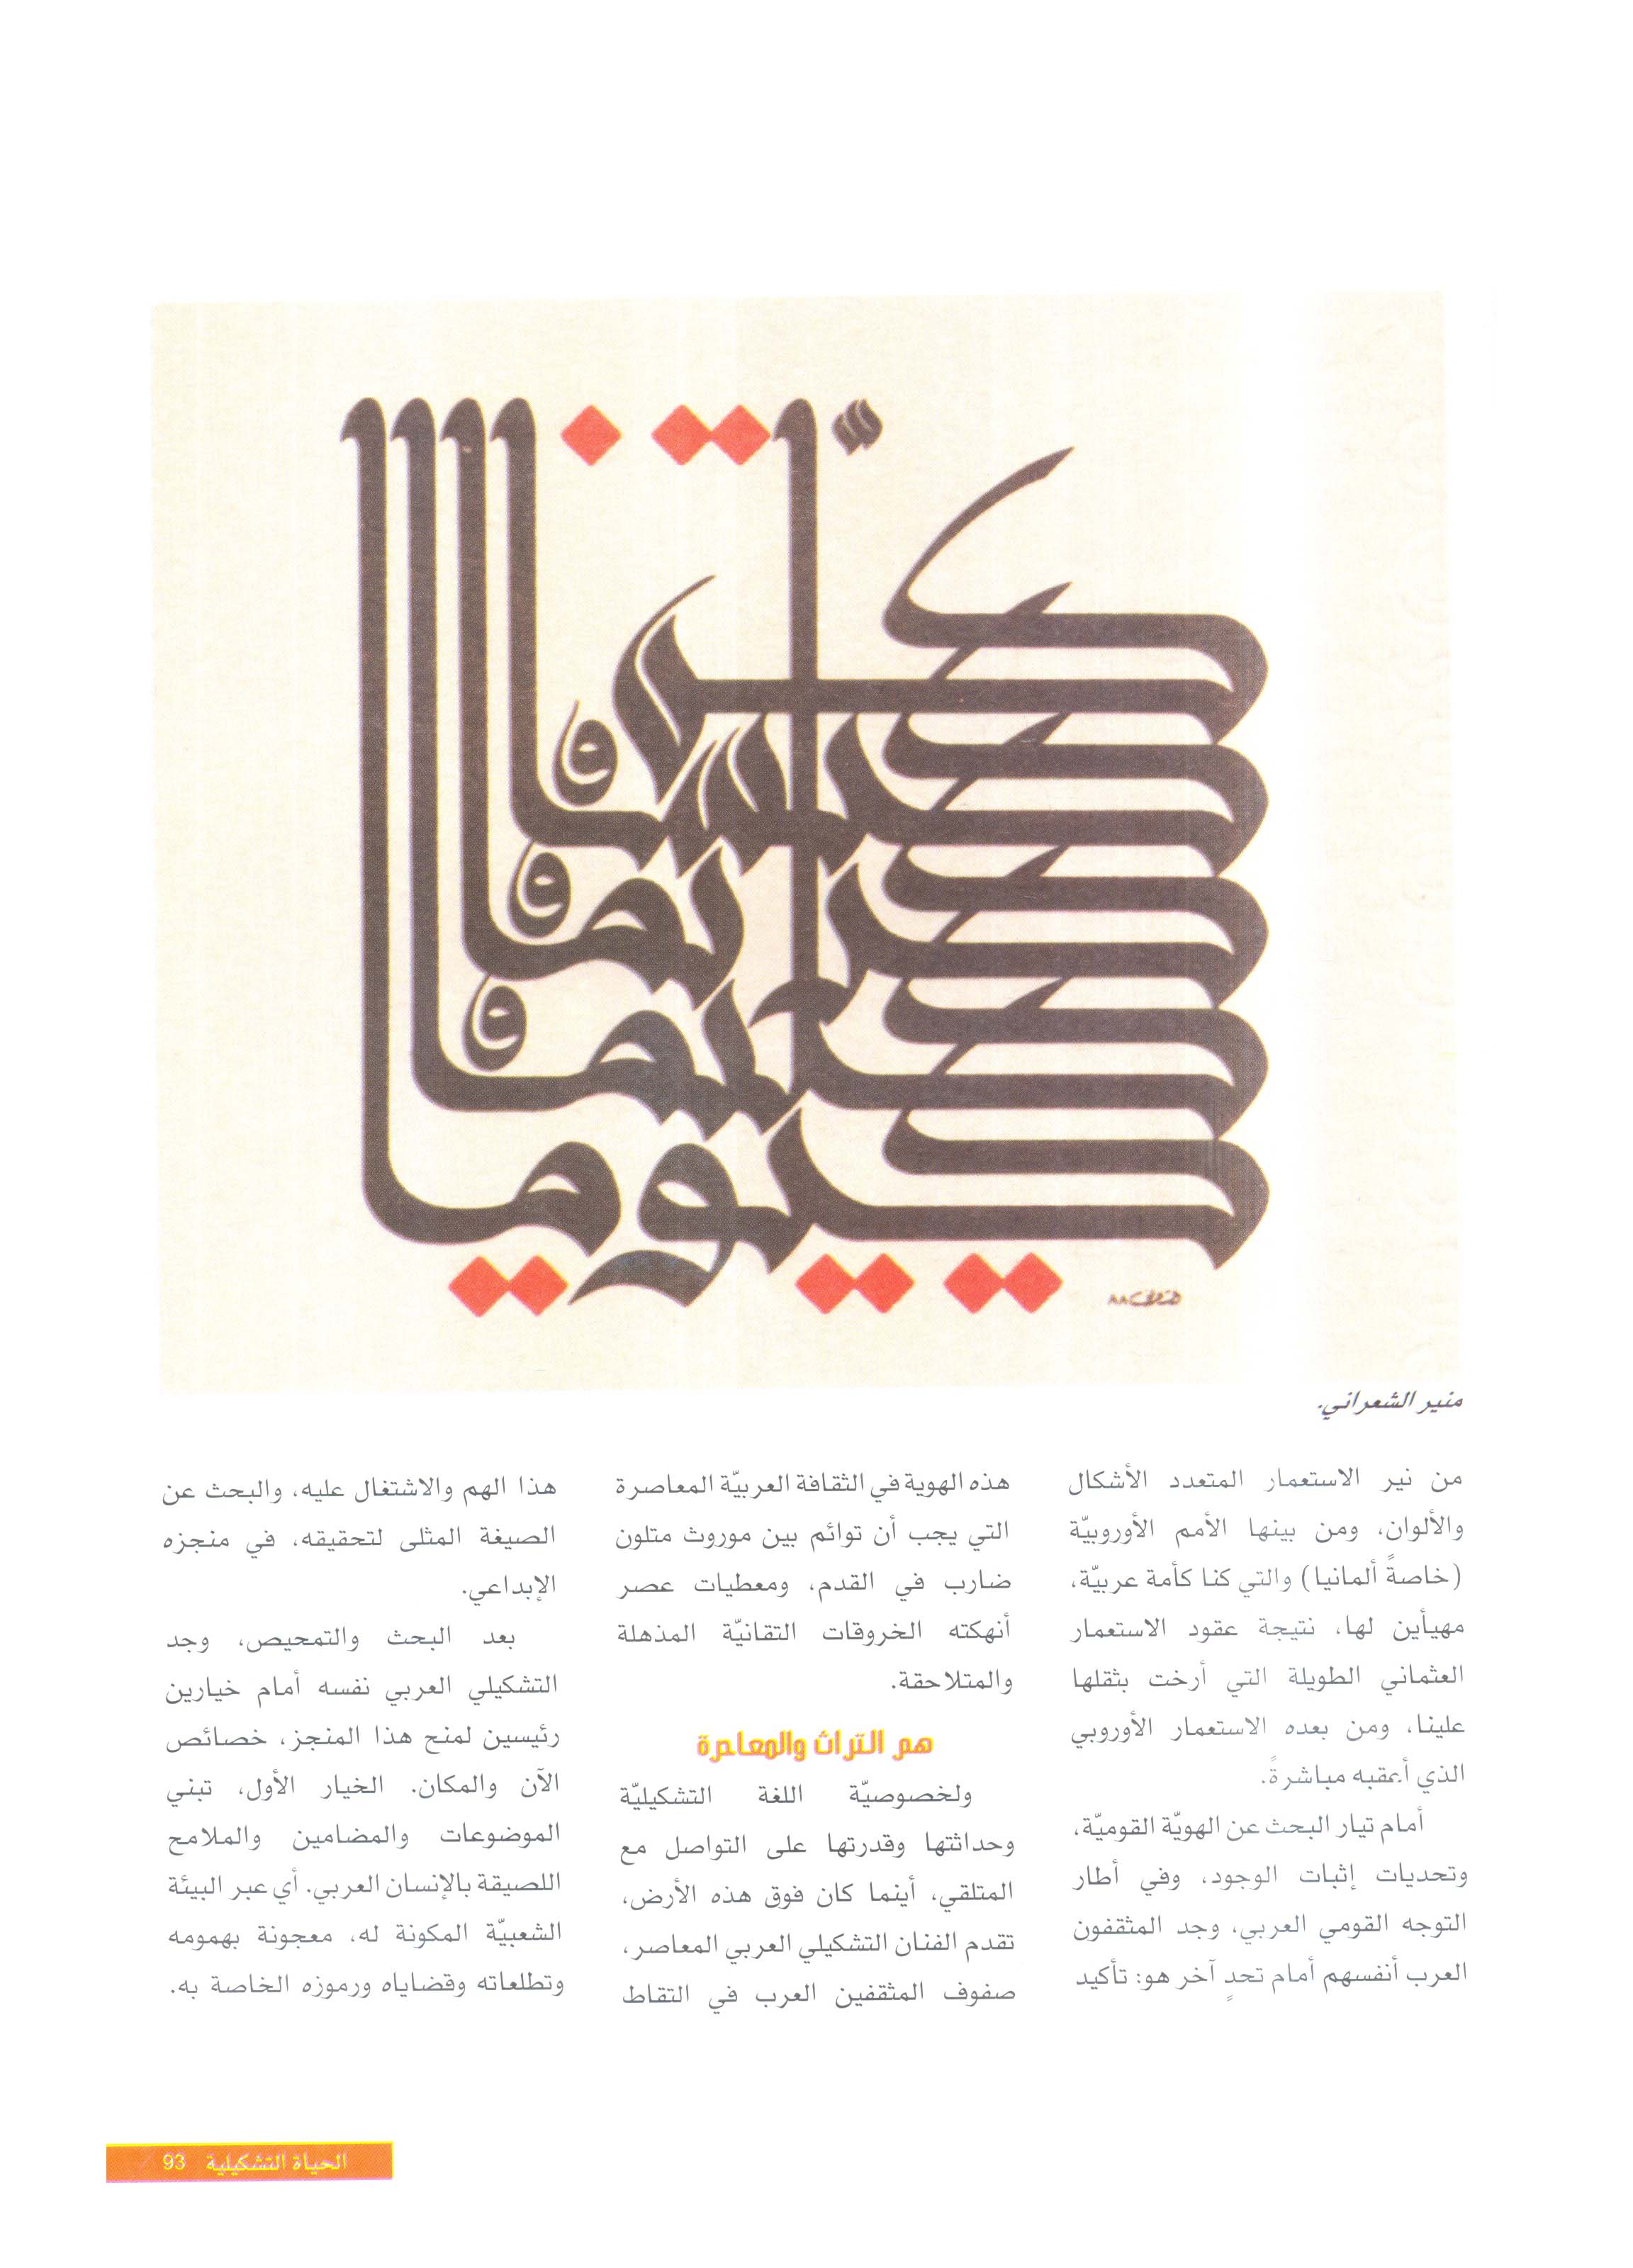 منير الشعراني.
من نير الاستعمار المتعدد الأشكال
والألوان، ومن بينها الأمم الأوروبيّة
(خاصةً ألمانيا) والتي كنا كأمة عربيّة،
مهيأين لها، نتيجة عقود الاستعمار
العثماني الطويلة التي أرخت بثقلها
علينا، ومن بعده الاستعمار الأوروبي
الذي أعقبه مباشرةً.
أمام تيار البحث عن الهويّة القوميّة،
وتحديات إثبات الوجود، وفي أطار
التوجه القومي العربي، وجد المثقفون
العرب أنفسهم أمام تحدٍ آخر هو: تأكيد
هذه الهوية في الثقافة العربيّة المعاصرة
التي يجب أن توائم بين موروث متلون
ضارب في القدم، ومعطيات عصر
أنهكته الخروقات التقانيّة المذهلة
والمتلاحقة.
هم التراث والمعاصرة
ولخصوصيّة اللغة التشكيليّة
وحداثتها وقدرتها على التواصل مع
المتلقي، أينما كان فوق هذه الأرض،
تقدم الفنان التشكيلي العربي المعاصر،
صفوف المثقفين العرب في التقاط
هذا الهم والاشتغال عليه، والبحث عن
الصيغة المثلى لتحقيقه، في منجزه
الإبداعي.
بعد البحث والتمحيص، وجد
التشكيلي العربي نفسه أمام خيارين
رئيسين لمنح هذا المنجز، خصائص
الآن والمكان. الخيار الأول، تبني
الموضوعات والمضامين والملامح
اللصيقة بالإنسان العربي. أي عبر البيئة
الشعبيّة المكونة له، معجونة بهمومه
وتطلعاته وقضاياه ورموزه الخاصة به.
الحياة التشكيلية 93